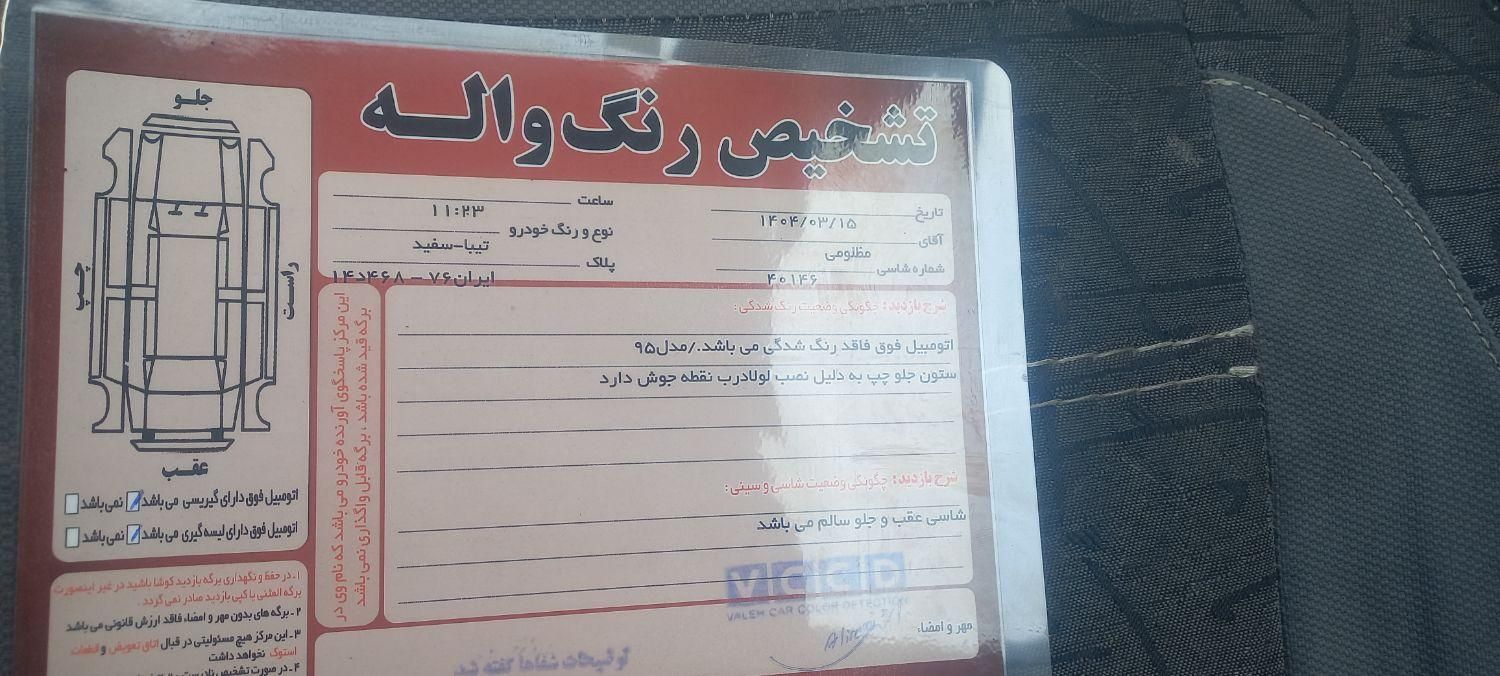 تشخیص رنگ واله
تاریخ ۱۴۰۴/۰۳/۱۵
ساعت ۱۱:۲۳
آقای مظلومی
نوع و رنگ خودرو تیبا-سفید
شماره شاسی ۴۰۱۴۶
پلاک ایران۷۶ – ۴۶۸د۱۴
شرح بازدید: چگونگی وضعیت رنگ شدگی:
اتومبیل فوق فاقد رنگ شدگی می باشد./مدل۹۵
ستون جلو چپ به دلیل نصب لولادرب نقطه جوش دارد
شرح بازدید: چگونگی وضعیت شاسی و سینی:
شاسی عقب و جلو سالم می باشد
VCCD
VALEH CAR COLOR DETECTION
مهر و امضاء
توضیحات شفاهاً گفته شد
این مرکز پاسخگوی آورنده خودرو می باشد که نام وی در
برگه قید شده باشد ، برگه قابل واگذاری نمی باشد
جلو
چپ
راست
عقب
اتومبیل فوق دارای گیریسی می باشد نمی باشد
اتومبیل فوق دارای لیسه گیری می باشد نمی باشد
۱- در حفظ و نگهداری برگه بازدید کوشا باشید در غیر اینصورت
برگه المثنی یا کپی بازدید صادر نمی گردد .
۲- برگه های بدون مهر و امضاء فاقد ارزش قانونی می باشد
۳- این مرکز هیچ مسئولیتی در قبال اتاق تعویض و قطعات
استوک نخواهد داشت
۴- در صورت تشخیص